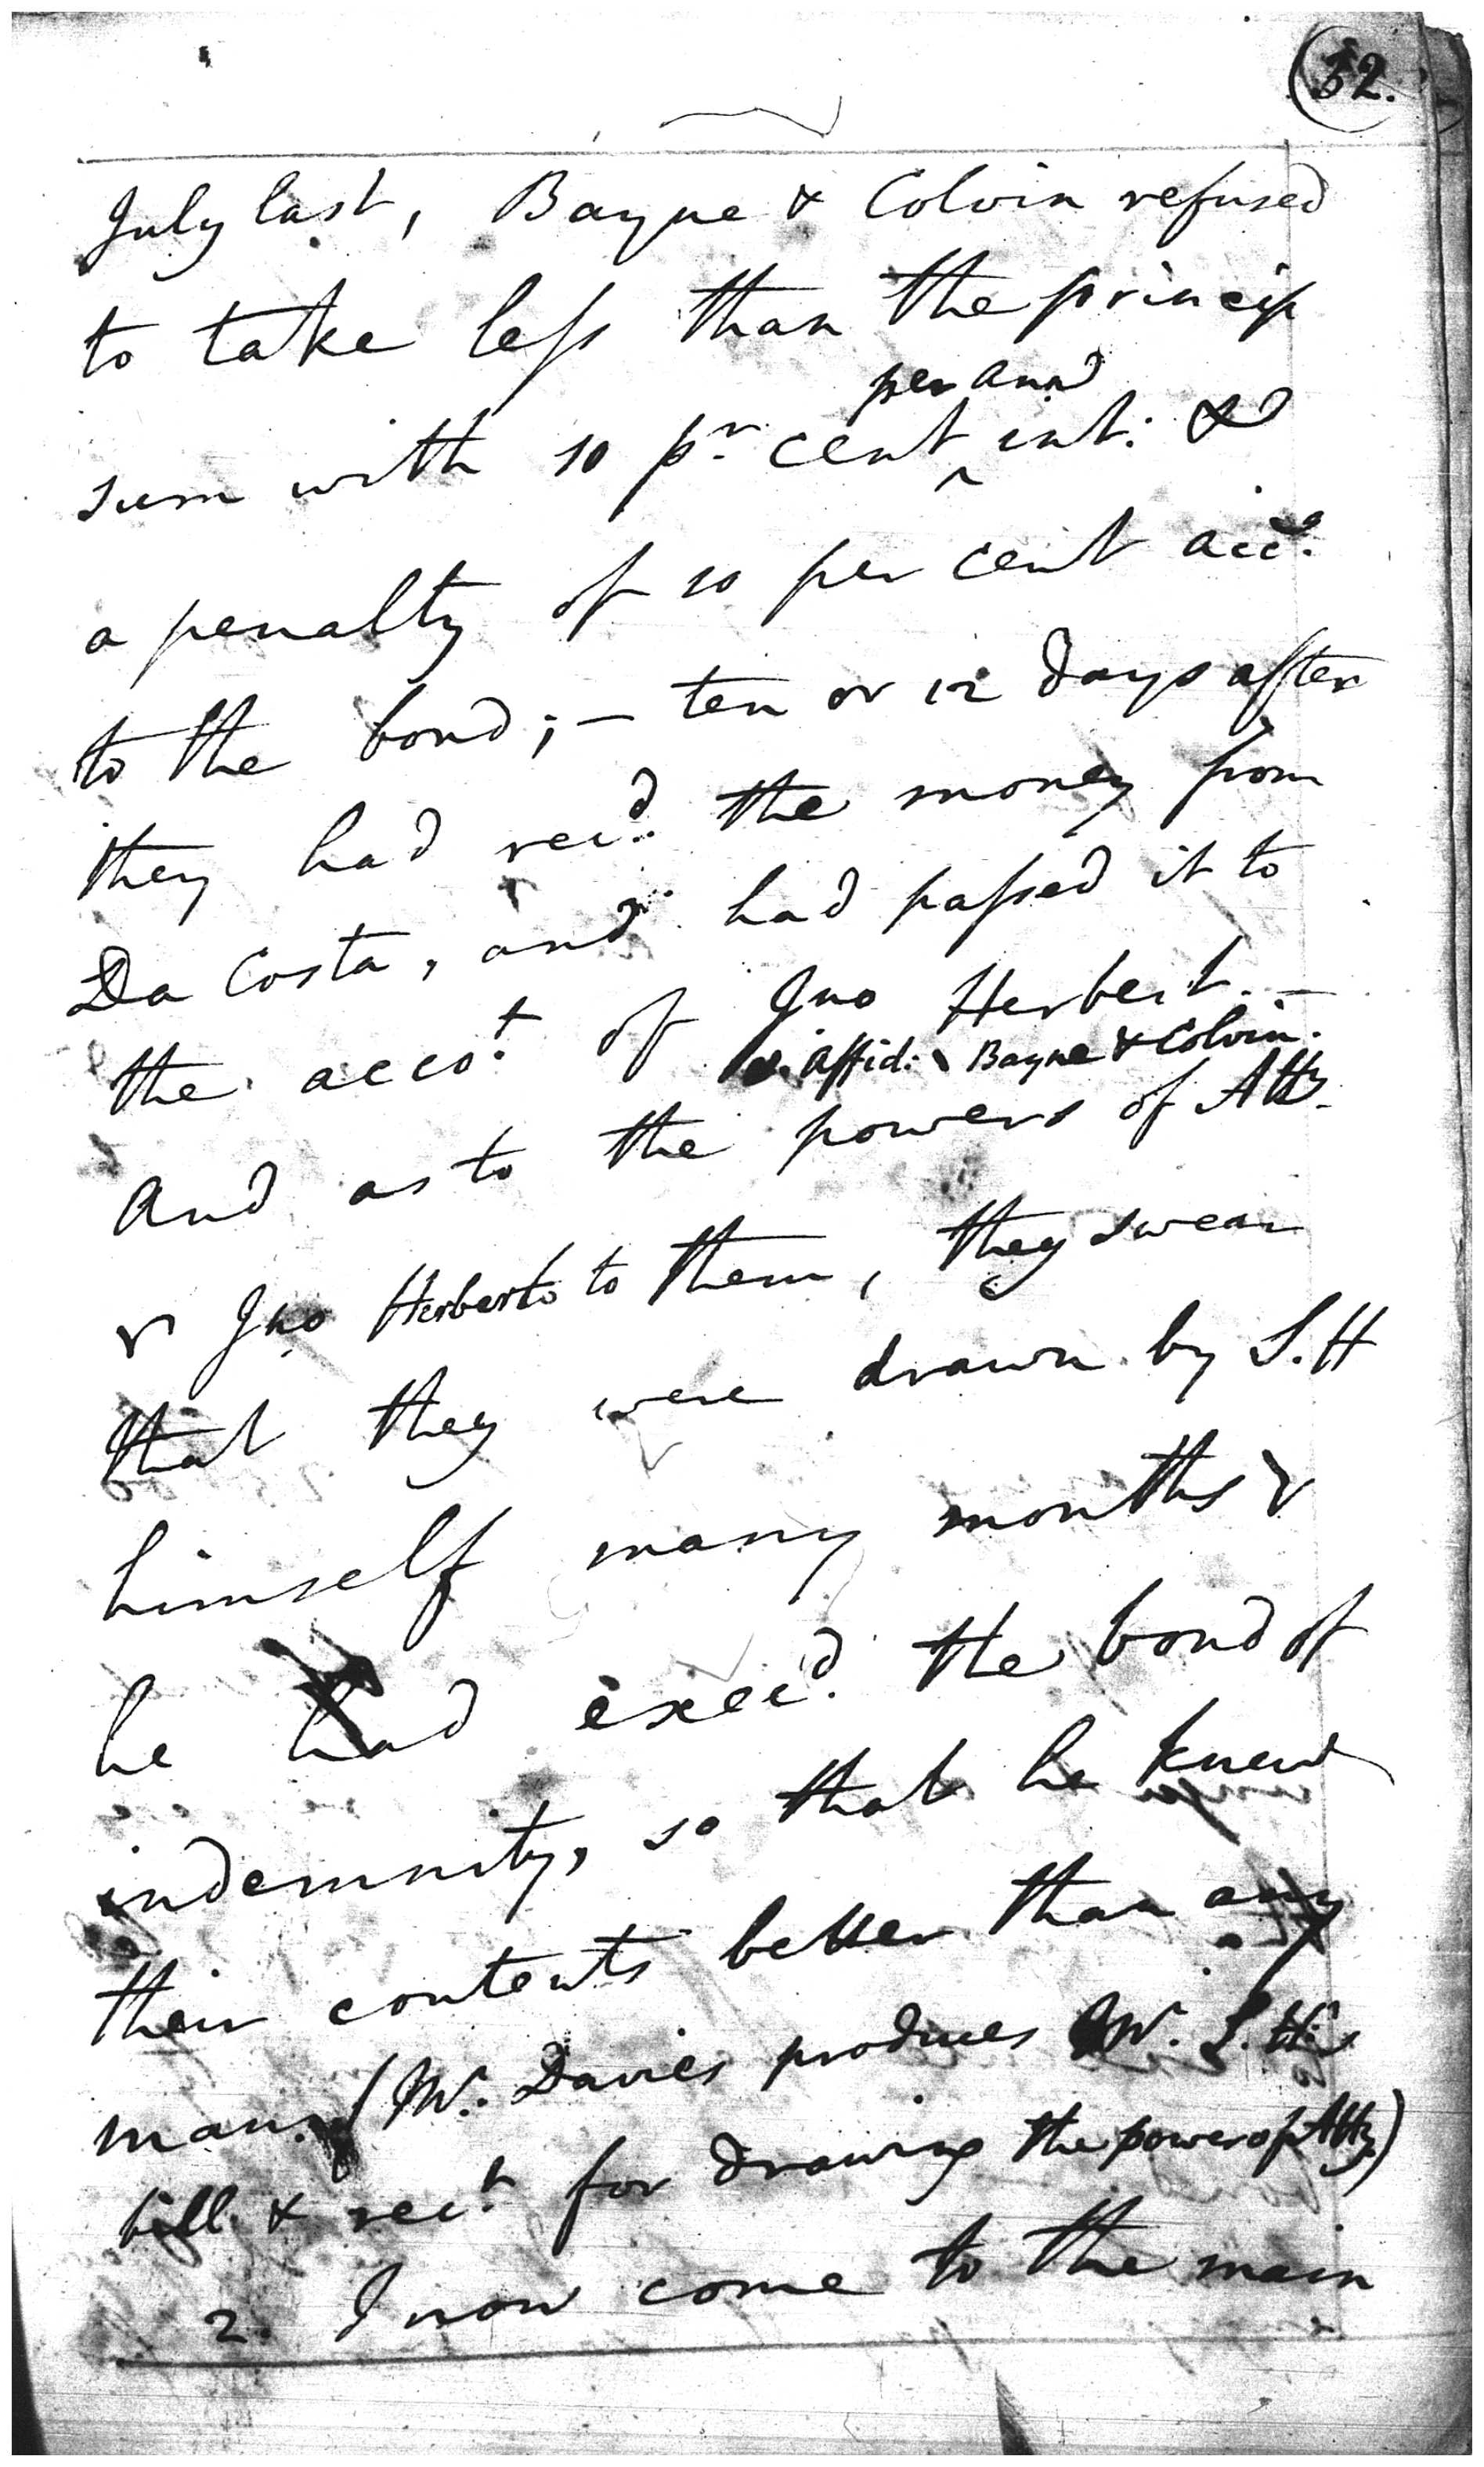 52.
July last, Bayne & Colvin refused
to take less than the princip
per ann
sum with 10 pr. cent ^ int: &
a penalty of 10 per cent acc.
to the bond; – ten or 12 days after
they had recd. the money from
Da Costa, and had passed it to
the accot. of Jno Herbert. –
v. affid: Bayne & Colvin.
And as to the powers of Atty.
Jno Herberts to them, they swear
that they were drawn by S. H
himself many months
he had execd. the bond of
indemnity, so that he knew
their contents better than any
man. (Mr. Davies produces Mr. S. H's
bill & rect. for drawing the power of Atty.)
2. I now come to the main